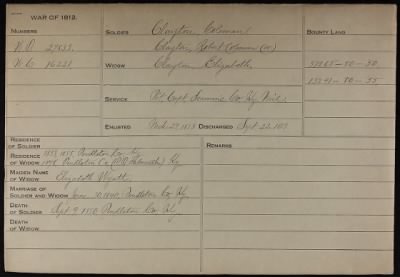 WAR OF 1812.
NUMBERS
W.O. 27833
W.C. 16231
SOLDIER Clayton, Coleman
Clayton, Robert Coleman (or)
WIDOW Clayton, Elizabeth
SERVICE Pvt. Capt. Co. Ky. Mil.
ENLISTED DISCHARGED Sept. 22,
BOUNTY LAND
80-50
80-55
RESIDENCE OF SOLDIER 1855, Pendleton Co. Ky
RESIDENCE OF WIDOW 1878 Pendleton Co. (P.O. Falmouth) Ky
MAIDEN NAME OF WIDOW Elizabeth Wyatt
MARRIAGE OF SOLDIER AND WIDOW Pendleton Co. Ky
DEATH OF SOLDIER Sept. 9, Pendleton Co. Ky
DEATH OF WIDOW
REMARKS